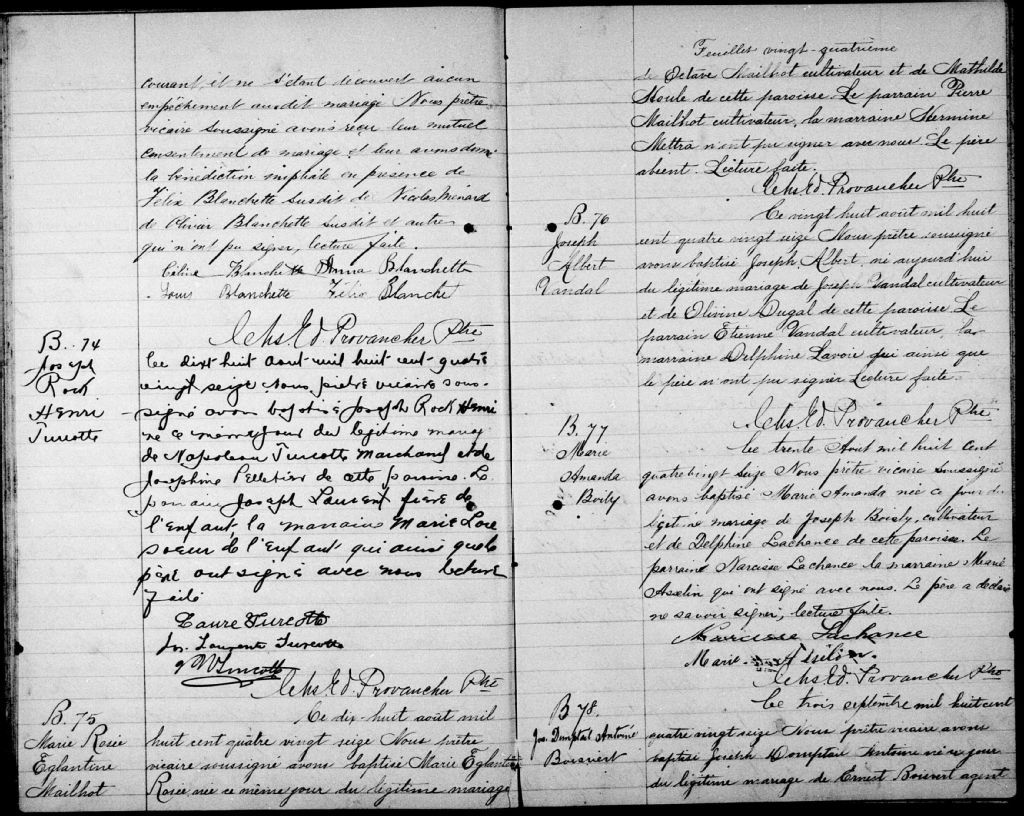 courant, et ne s'étant découvert aucun
empêchement au dit mariage Nous prêtre
vicaire soussigné avons reçu leur mutuel
consentement de mariage et leur avons donné
la bénédiction nuptiale en présence de
Félix Blanchette susdit de Nicolas Ménard
de Olivier Blanchette susdit et autres
qui n'ont pu signer, lecture faite.
Célina Blanchette Anna Blanchette
Louis Blanchette Félix Blanche
Chs Ed. Provancher Ptre
B. 74
Joseph
Rock
Henri
Turcotte
Ce dix huit aout mil huit cent quatre
vingt seize nous prêtre vicaire sous-
signé avons baptisé Joseph Rock Henri
né ce même jour du légitime mariag
de Napoleon Turcotte Marchand et de
Josephine Pelletier de cette paroisse. Le
parrain Joseph Laurent frère de
l'Enfant, la marraine Marie Lore
soeur de l'Enfant qui ainsi que le
père ont signé avec nous lecture
faite
Laure Turcotte
Jos. Laurent Turcotte
Turcotte
Chs Ed. Provancher Ptre
B. 75
Marie Rosée
Eglantine
Mailhot
Ce dix-huit août mil
huit cent quatre vingt seize Nous prêtre
vicaire soussigné avons baptisé Marie Eglantine
Rosée née ce même jour du légitime mariage
Feuillet vingt-quatrième
de Octave Mailhot cultivateur et de Mathilde
Houle de cette paroisse. Le parrain Pierre
Mailhot cultivateur, la marraine Hermine
Mettra n'ont pu signer avec nous. Le père
absent. Lecture faite.
Chs Ed. Provancher Ptre
B. 76
Joseph
Albert
Vandal
Ce vingt huit août mil huit
cent quatre vingt seize Nous prêtre soussigné
avons baptisé Joseph, Albert, né aujourd'hui
du légitime mariage de Joseph Vandal cultivateur
et de Olivine Dugal de cette paroisse. Le
parrain Etienne Vandal cultivateur, la
marraine Delphine Lavoie qui ainsi que
le père n'ont pu signer Lecture faite.
Chs Ed. Provancher Ptre
B. 77
Marie
Amanda
Boily
Ce trente Aout mil huit cent
quatre vingt seize Nous prêtre vicaire soussigné
avons baptisé Marie Amanda née ce jour du
légitime mariage de Joseph Boily, cultivateur
et de Delphine Lachance de cette paroisse. Le
parrain Narcisse Lachance la marraine Marie
Asselin qui ont signé avec nous. Le père a déclaré
ne savoir signer, lecture faite.
Narcisse Lachance
Marie
Chs Ed. Provancher Ptre
B 78.
Jos. Domptail Antoine
Boisvert
Ce trois septembre mil huit cent
quatre vingt seize Nous prêtre vicaire avons
baptisé Joseph Domptail Antoine né ce jour
du légitime mariage de Ernest Boisvert agent